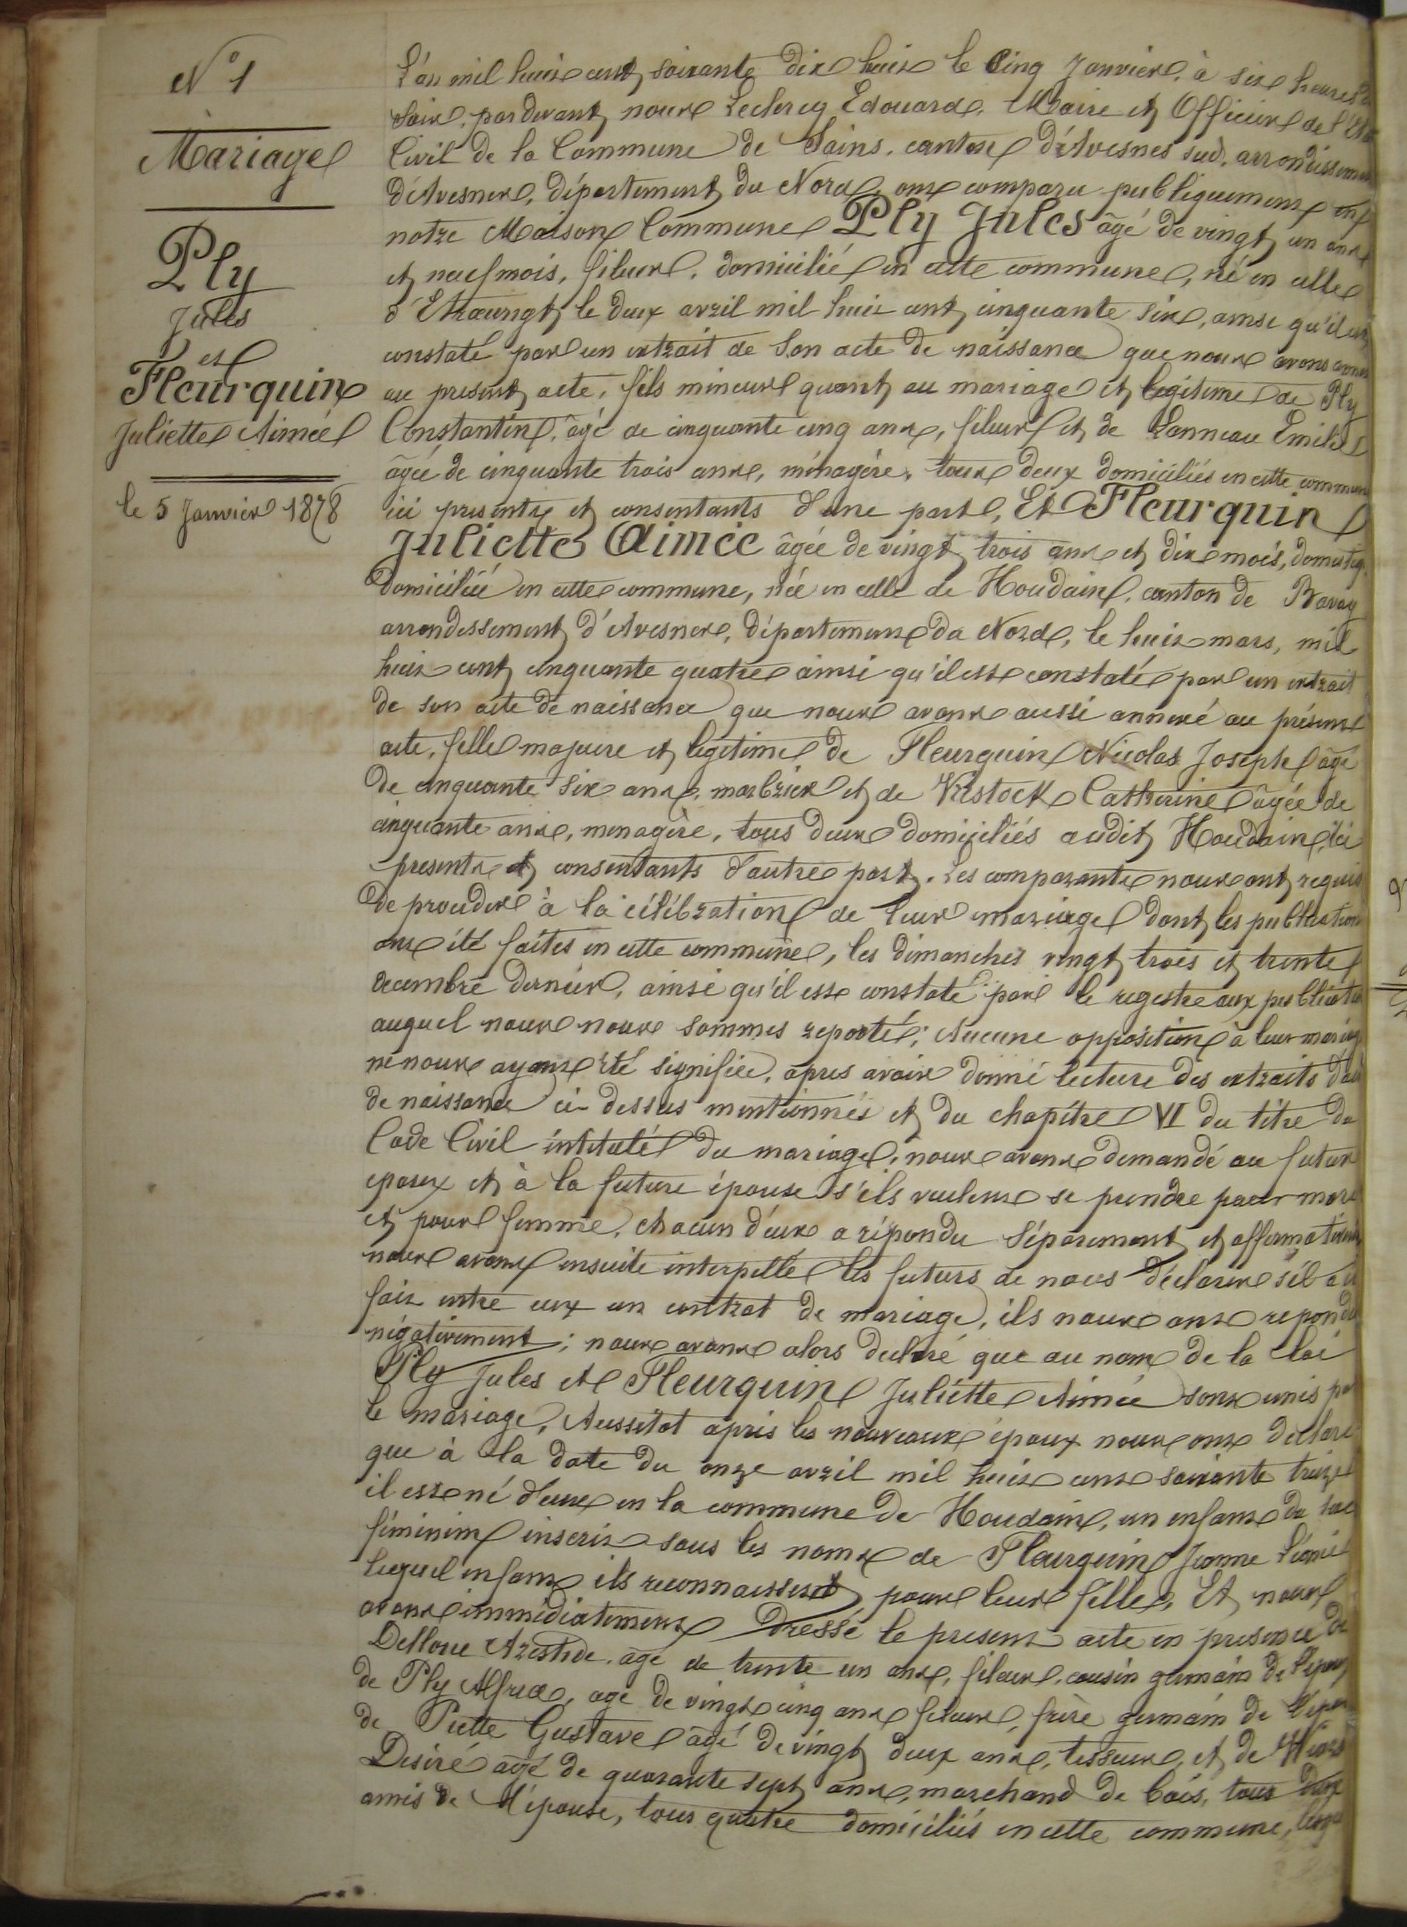 N° 1
Mariage
Ply
Jules
et
Fleurquin
Juliette Aimée
le 5 Janvier 1878
L'an mil huit cent soixante dix huit le Cinq Janvier, à six heures du
soir, par devant nous Leclercq Edouard, Maire et Officier de l'Etat
Civil de la Commune de Sains, canton d'Avesnes sud, arrondissement
d'Avesnes, département du Nord, ont comparu publiquement en
notre Maison Commune Ply Jules âgé de vingt un ans
et neuf mois, fileur, domicilié en cette commune, né en celle
d'Etroeungt le deux avril mil huit cent cinquante six, ainsi qu'il est
constaté par un extrait de son acte de naissance que nous avons annexé
au présent acte, fils mineur quant au mariage et légitime de Ply
Constantin, âgé de cinquante cinq ans, fileur et de Lanneau Emilie
âgée de cinquante trois ans, ménagère, tous deux domiciliés en cette commune
ici présents et consentants d'une part, Et Fleurquin
Juliette Aimée âgée de vingt trois ans et dix mois, domestique
domiciliée en cette commune, née en celle de Houdain, canton de Bavay
arrondissement d'Avesnes, département du Nord, le huit mars, mil
huit cent cinquante quatre ainsi qu'il est constaté par un extrait
de son acte de naissance que nous avons aussi annexé au présent
acte, fille majeure et légitime de Fleurquin Nicolas Joseph âgé
de cinquante six ans, marbrier et de Vistock Catherine âgée de
cinquante ans, menagère, tous deux domiciliés audit Houdain, ici
présents et consentants d'autre part. Les comparants nous ont requis
de procéder à la célébration de leur mariage dont les publications
ont été faites en cette commune, les dimanches vingt trois et trente
decembre dernier, ainsi qu'il est constaté par le registre aux publications
auquel nous nous sommes reporté; Aucune opposition à leur mariage
ne nous ayant été signifiée, apres avoir donné lecture des extraits d'acte
de naissance ci-dessus mentionnés et du chapitre VI du titre du
Code Civil intitulé du mariage, nous avons demandé au futur
epoux et à la future épouse s'ils veulent se prendre pour mari
et pour femme, chacun d'eux a répondu séparement et affirmativement
nous avons ensuite interpellé les futurs de nous déclarer s'il a été
fait entre eux un contrat de mariage, ils nous ont repondu
négativement; nous avons alors declaré que au nom de la loi
Ply Jules et Fleurquin Juliette Aimée sont unis par
le mariage, Aussitot après les nouveaux époux nous ont déclaré
que à la date du onze avril mil huit cent soixante treize
il est né d'eux en la commune de Houdain, un enfant du sexe
féminin inscrit sous les noms de Fleurquin Jeanne Léonie
lequel enfant ils reconnaissent pour leur fille, Et nous
avons immédiatement dressé le present acte en présence de
Delloue Aristide, âgé de trente un ans, fileur, cousin germain de l'époux
de Ply Alfred, agé de vingt cinq ans fileur, frère germain de l'époux
de Piette Gustave âgé de vingt deux ans, tisseur, et de
Desiré âgé de quarante sept ans, marchand de bois, tous deux
amis de l'épouse, tous quatre domiciliés en cette commune,